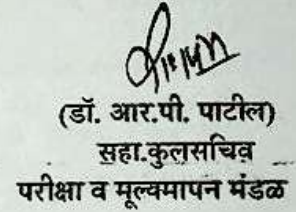 (डॉ. आर.पी. पाटील)
सहा.कुलसचिव
परीक्षा व मूल्यमापन मंडळ